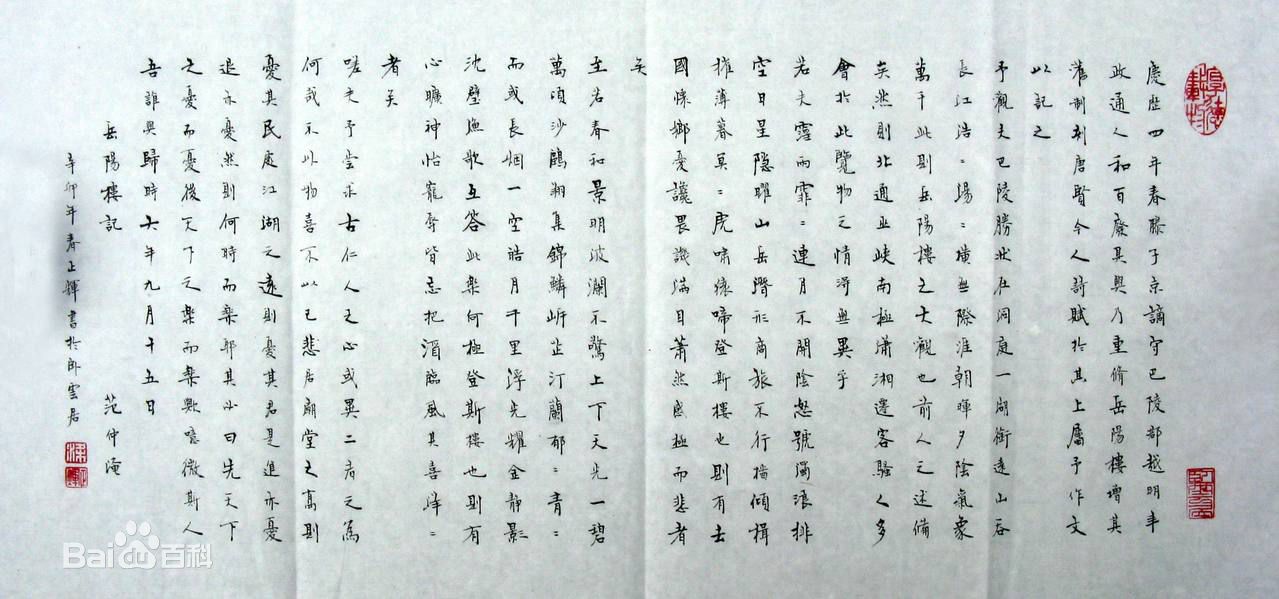 慶歷四年春滕子京謫守巴陵郡越明年
政通人和百廢具興乃重脩岳陽樓增其
舊制刻唐賢今人詩賦於其上屬予作文
以記之
予觀夫巴陵勝狀在洞庭一湖銜遠山吞
長江浩=湯=橫無際涯朝暉夕陰氣象
萬千此則岳陽樓之大觀也前人之述備
矣然則北通巫峽南極瀟湘遷客騷人多
會於此覽物之情得無異乎
若夫霪雨霏=連月不開陰怒號濁浪排
空日星隱曜山岳潛形商旅不行檣傾楫
摧薄暮冥=虎嘯猿啼登斯樓也則有去
國懷鄉憂讒畏譏滿目蕭然感極而悲者
矣
至若春和景明波瀾不驚上下天光一碧
萬頃沙鷗翔集錦鱗岸芷汀蘭郁=青=
而或長煙一空皓月千里浮光耀金靜影
沈璧漁歌互答此樂何極登斯樓也則有
心曠神怡寵辱皆忘把酒臨風其喜洋=
者矣
嗟夫予嘗求古仁人之心或異二者之為
何哉不以物喜不以己悲居廟堂之高則
憂其民處江湖之遠則憂其君是進亦憂
退亦憂然則何時而樂耶其必曰先天下
之憂而憂後天下之樂而樂歟噫微斯人
吾誰與歸時六年九月十五日
岳陽樓記 范仲淹
辛卯年春正輝書於卧雲居
厚德載物
Bai百科